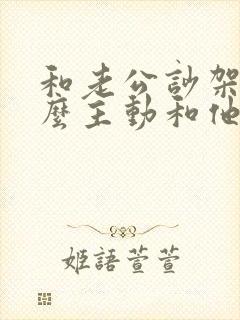 和老公訪架
麼主動和他
姬語萱萱